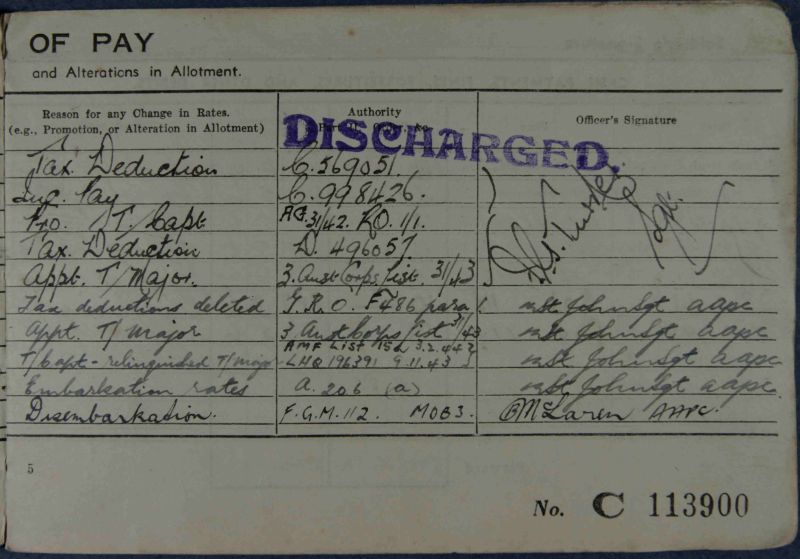 OF PAY
and Alterations in Allotment.
Reason for any Change in Rates. Authority Officer's Signature
(e.g., Promotion, or Alteration in Allotment)
DISCHARGED.
Tax. Deduction C. 569051.
Inc. Pay C. 998426.
Pro. T/Capt 31/42. RO. 1/1.
Tax. Deduction D. 496057
Appt. T/Major. 3. Aust Corps. List. 31/43
Tax deductions deleted G.R.O. F486 para 1. St John Sgt aapc
Appt. T/Major 3 Aust Corps List 31/43 St John Sgt aapc
T/Capt - relinguished T/Major AMF List LHQ 196391 9.11.43 St John Sgt aapc
Embarkation rates A. 206 (a) St John Sgt aapc
Disembarkation. F.G.M. 112. MOB3. McLaren AAPC.
5
No. C 113900